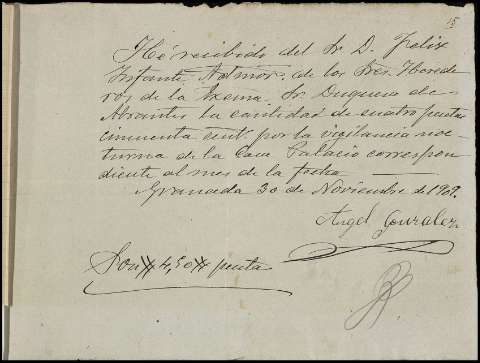 15
He recibido del Sr. D. Felix
Infante Admor. de los Sres. Herede
ros de la Excma. Sr. Duquesa de
Abrantes la cantidad de cuatro pesetas
cincuenta cent. por la vigilancia noc-
turna de la casa Palacio correspon-
diente al mes de la fecha
Granada 30 de Noviembre de 1909.
Angel Gonzalez
Son # 4,50 # pesetas